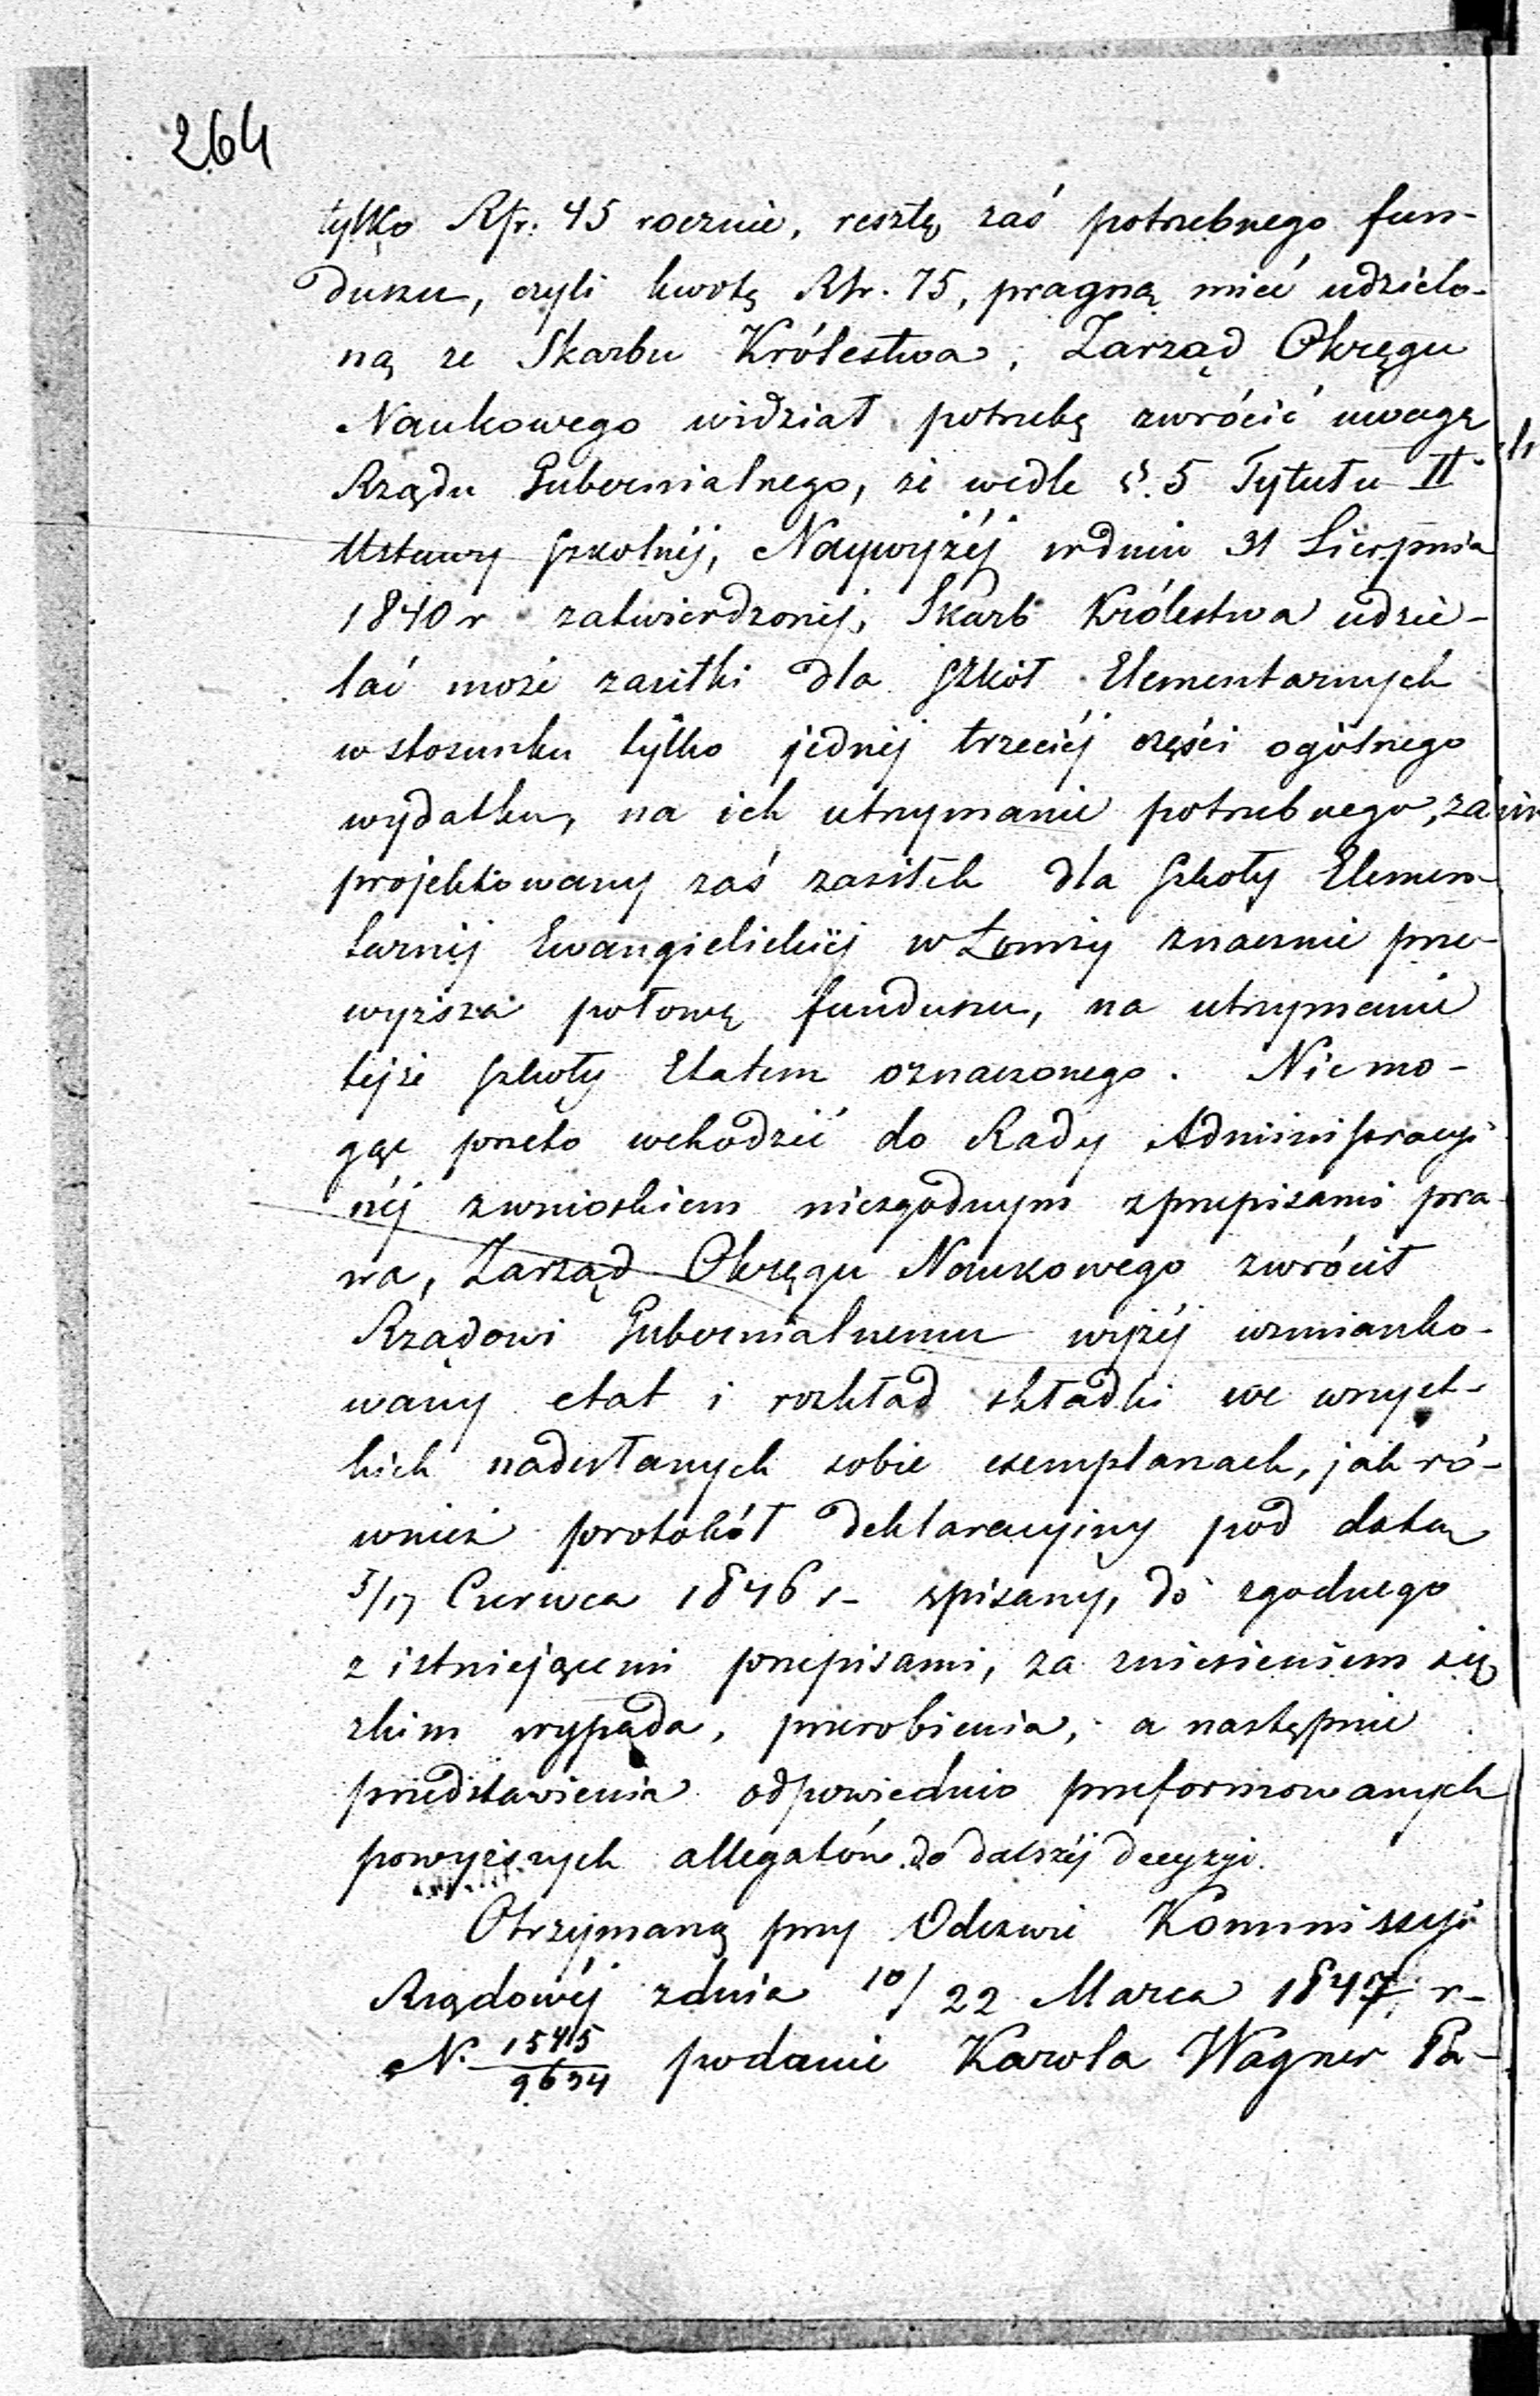 264
tylko Rsr. 45 rocznie, resztę zaś potrzebnego fun-
duszu, czyli kwotę Rsr. 75, pragną mieć udzielo-
ną ze Skarbu Królestwa, Zarząd Okręgu
Naukowego widział potrzebę zwrócić uwagę
Rządu Gubernialnego, że wedle §. 5 Tytułu II
Ustawy Szkolnéj, Naywyżéj w dniu 31 Sierpnia
1840 r zatwierdzonéj, Skarb Królestwa udzie-
lać może zasiłki dla Szkół Elementarnych
w stosunku tylko jednéj trzeciéj części ogólnego
wydatku, na ich utrzymanie potrzebnego, za
projektowany zaś zasiłek dla Szkoły Elemen-
tarnéj Ewangielickiéj w Łomży znacznie prze-
wyższa połowę funduszu, na utrzymanie
tejże Szkoły Etatem oznaczonego. Niemo-
gąc przeto wchodzić do Rady Administracyj
néj z wnioskiem niezgodnym z przepisami pra-
wa, Zarząd Okręgu Naukowego zwrócił
Rządowi Gubernialnemu wyżéj wzmianko-
wany etat i rozkład składki we wszyst-
kich nadesłanych sobie exemplarzach, jak ró-
wnież protokół deklaracyjny pod datą
5/17 Czerwca 1846 r- spisany, do zgodnego
z istniejącemi przepisami, za zniesieniem się
z kim wypada, przerobienia, a następnie
przedstawienia odpowiednio przeformowanych
powyższych allegatów do dalszéj decyzyi.
Otrzymaną przy Odezwie Kommissyi
Rządowéj z dnia 10/22 Marca 1847 r-
N. 1545/9634 podanie Karola Wagner Pa-